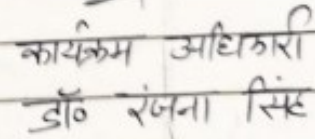 कार्यक्रम अधिकारी
डॉ० रंजना सिंह